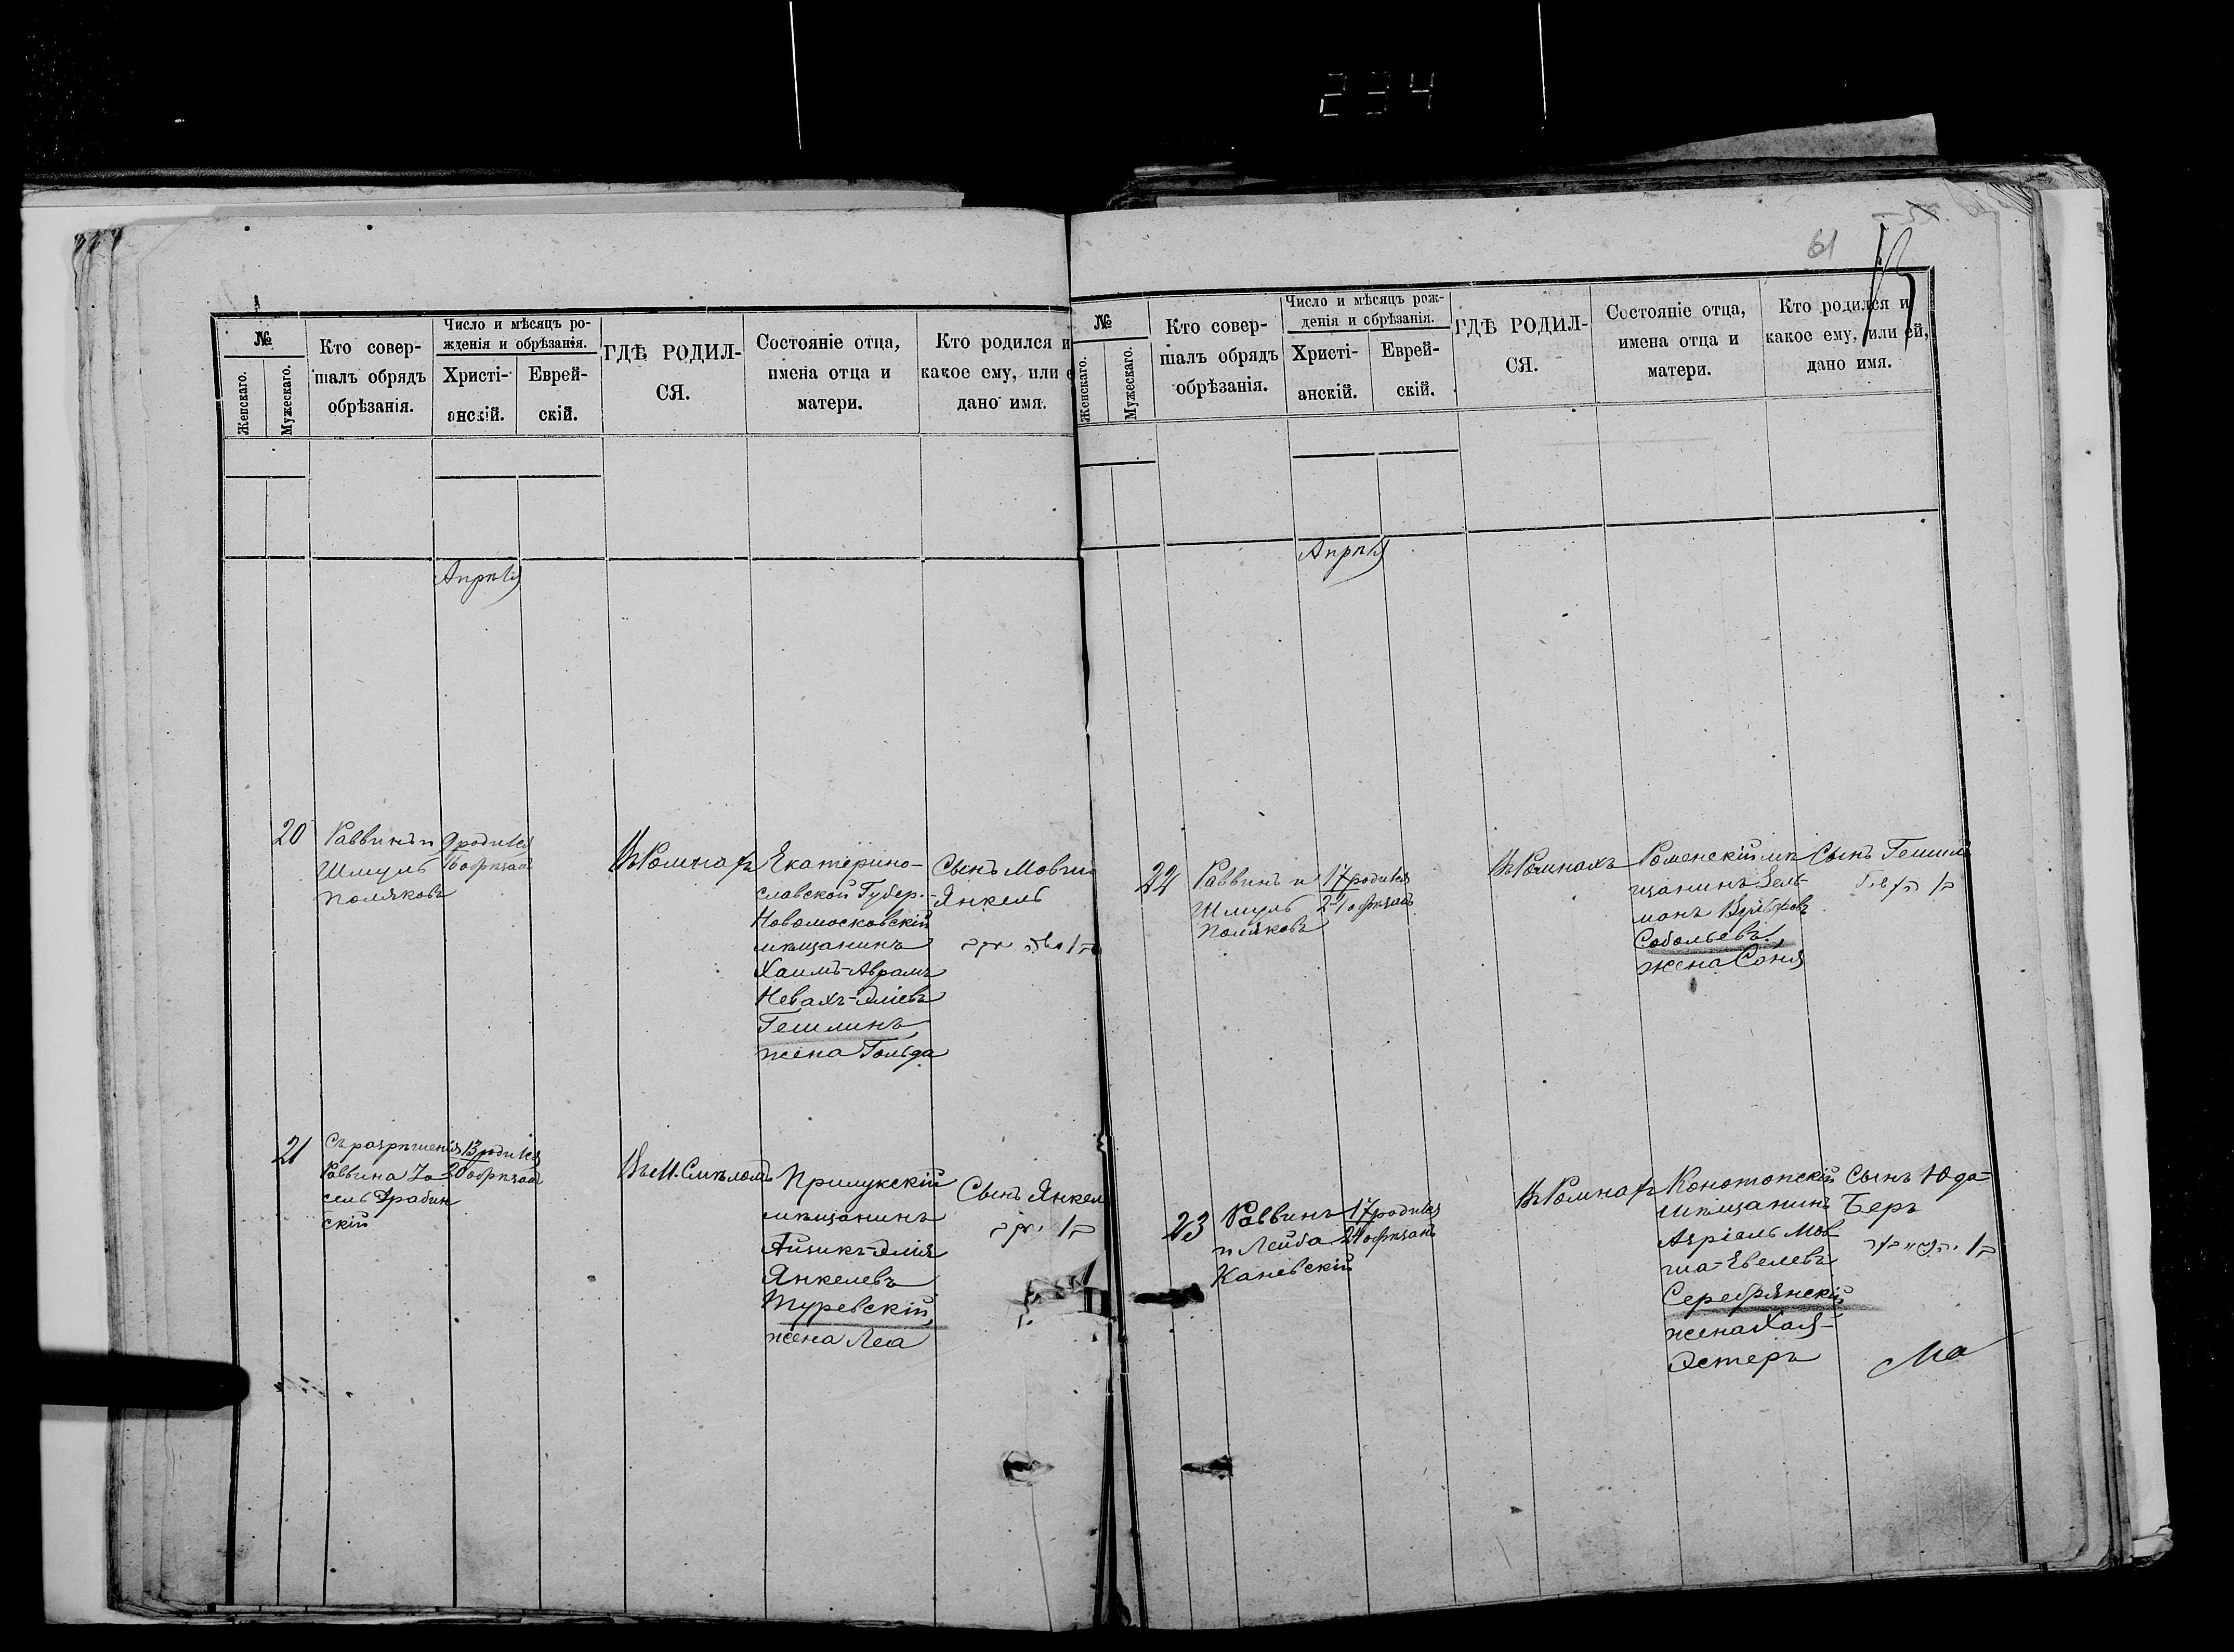 234
№
Женскаго.
Мужескаго.
Кто совер-
шалъ обрядъ
обрѣзанія.
Число и мѣсяцъ ро-
жденія и обрѣзанія.
Христі-
анскій.
Еврей-
скій.
ГДѢ РОДИЛ-
СЯ.
Состояніе отца,
имена отца и
матери.
Кто родился и
какое ему, или
дано имя.
Апрѣля
20
Раввинъ и
Шмуль
Поляковъ
9 родился
16 обрѣзанъ
Въ Ромнахъ
Екатерино-
славской Губер.
Новомосковскій
мѣщанинъ
Хаимъ-Аврамъ
Невахъ-Эліевъ
Гешлинъ,
жена Гольда
Сынъ Мовша
Янкель
21
Съ разрѣшенія
Раввина
13 родился
20 обрѣзанъ
Въ м. Смѣломъ
Прилукскій
мѣщанинъ
Айзикъ-Элія
Янкелевъ
Туревскій,
жена Леа
Сынъ Янкель
61
№
Женскаго.
Мужескаго.
Кто совер-
шалъ обрядъ
обрѣзанія.
Число и мѣсяцъ рож-
денія и обрѣзанія.
Христі-
анскій.
Еврей-
скій.
ГДѢ РОДИЛ-
СЯ.
Состояніе отца,
имена отца и
матери.
Кто родился и
какое ему, или ей,
дано имя.
Апрѣля
22
Раввинъ и
Шмуль
Поляковъ
17 родился
24 обрѣзанъ
Въ Ромнахъ
Роменскій мѣ
щанинъ Зель-
манъ Вульфовъ
Собольевъ,
жена Соня
Сынъ Гешиль
23
Раввинъ
и Лейба
Каневскій
17 родился
24 обрѣзанъ
Въ Ромнахъ
Конотопскій
мѣщанинъ
Азріель Мов
ша-Евелевъ
Серебрянскій
жена Хая-
Эстеръ
Сынъ Юда-
Беръ